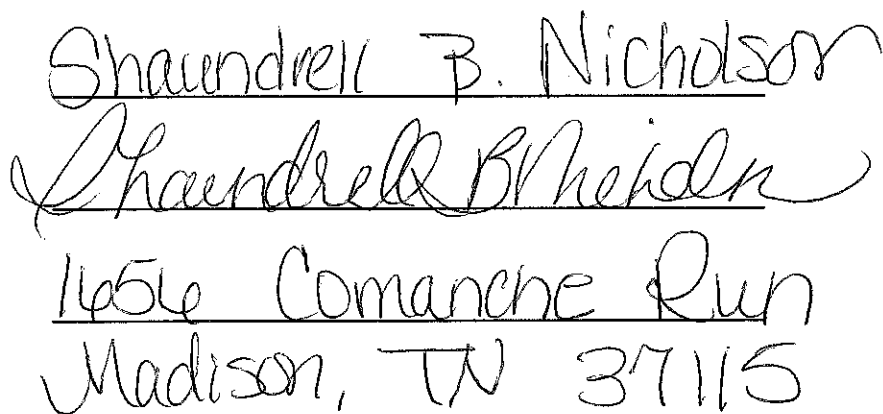 Shaundrell B. Nicholson
Shaundrell B Nicholson
1656 Comanche Run
Madison, TN 37115